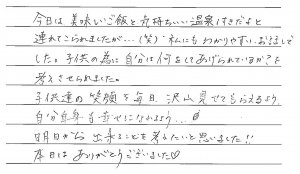 今日は美味しいご飯と気持ちいい温泉付きだよと
連れてこられましたが…(笑) 私にもわかりやすいおはなしで
した。子供の為に自分は何をしてあげられているか?を
考えさせられました。
子供達の笑顔を毎日、沢山見せてもらえるよう
自分自身も幸せになれるよう…
明日から出来ることを考えたいと思いました!!
本日はありがとうございました♡